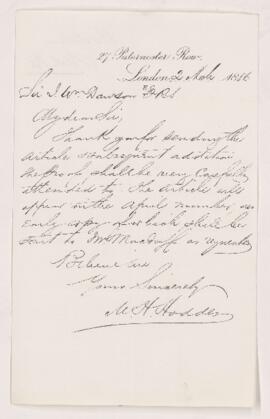 27, Paternoster Row,
London, 2 Mch 1886
Sir J. Wm Dawson
My dear Sir,
Thank you for sending the
article & subsequent addition
the proof shall be very carefully
attended to. The article will
appear in the April number, an
early copy of which shall be
sent to as requested
Believe me
Yours Sincerely
M. H. Hodder